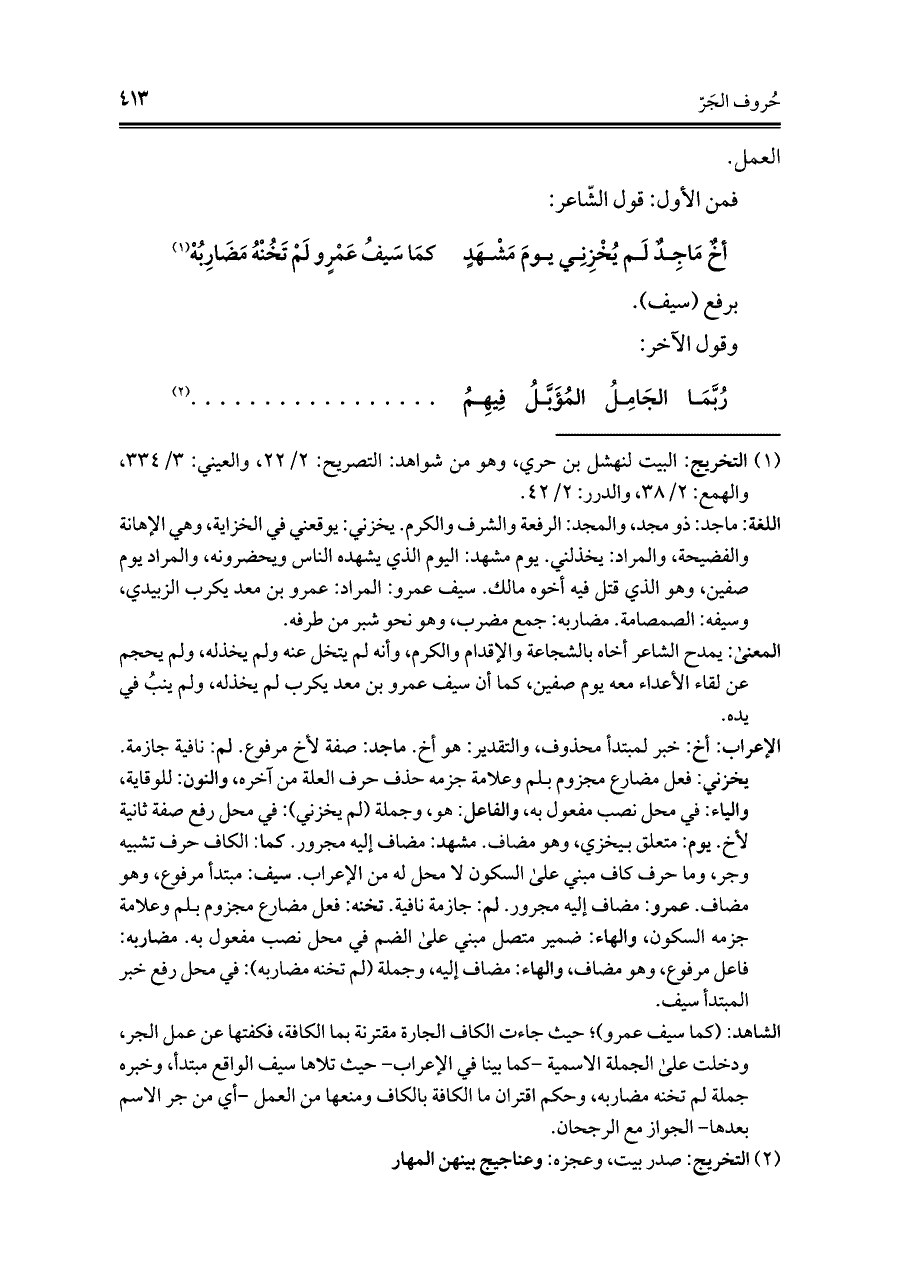 حُروف الجَرّ ٤١٣
العمل.
فمن الأول: قول الشّاعر:
أَخٌ مَاجِدٌ لَم يُخْزِنِي يومَ مَشْهَدٍ كمَا سَيفُ عَمْرٍو لَمْ تَخُنْهُ مَضَارِبُهْ(١)
برفع (سيف).
وقول الآخر:
رُبَّمَا الجَامِلُ المُؤَبَّلُ فِيهِمُ . . . . . . . . . . . . . . . . .(٢)
(١) التخريج: البيت لنهشل بن حري، وهو من شواهد: التصريح: ٢/ ٢٢، والعيني: ٣/ ٣٣٤،
والهمع: ٢/ ٣٨، والدرر: ٢/ ٤٢.
اللغة: ماجد: ذو مجد، والمجد: الرفعة والشرف والكرم. يخزني: يوقعني في الخزاية، وهي الإهانة
والفضيحة، والمراد: يخذلني. يوم مشهد: اليوم الذي يشهده الناس ويحضرونه، والمراد يوم
صفين، وهو الذي قتل فيه أخوه مالك. سيف عمرو: المراد: عمرو بن معد يكرب الزبيدي،
وسيفه: الصمصامة. مضاربه: جمع مضرب، وهو نحو شبر من طرفه.
المعنىٰ: يمدح الشاعر أخاه بالشجاعة والإقدام والكرم، وأنه لم يتخل عنه ولم يخذله، ولم يحجم
عن لقاء الأعداء معه يوم صفين، كما أن سيف عمرو بن معد يكرب لم يخذله، ولم ينبُ في
يده.
الإعراب: أخ: خبر لمبتدأ محذوف، والتقدير: هو أخ. ماجد: صفة لأخ مرفوع. لم: نافية جازمة.
يخزني: فعل مضارع مجزوم بـلم وعلامة جزمه حذف حرف العلة من آخره، والنون: للوقاية،
والياء: في محل نصب مفعول به، والفاعل: هو، وجملة (لم يخزني): في محل رفع صفة ثانية
لأخ. يوم: متعلق بـيخزي، وهو مضاف. مشهد: مضاف إليه مجرور. كما: الكاف حرف تشبيه
وجر، وما حرف كاف مبني علىٰ السكون لا محل له من الإعراب. سيف: مبتدأ مرفوع، وهو
مضاف. عمرو: مضاف إليه مجرور. لم: جازمة نافية. تخنه: فعل مضارع مجزوم بـلم وعلامة
جزمه السكون، والهاء: ضمير متصل مبني علىٰ الضم في محل نصب مفعول به. مضاربه:
فاعل مرفوع، وهو مضاف، والهاء: مضاف إليه، وجملة (لم تخنه مضاربه): في محل رفع خبر
المبتدأ سيف.
الشاهد: (كما سيف عمرو)؛ حيث جاءت الكاف الجارة مقترنة بما الكافة، فكفتها عن عمل الجر،
ودخلت علىٰ الجملة الاسمية -كما بينا في الإعراب- حيث تلاها سيف الواقع مبتدأ، وخبره
جملة لم تخنه مضاربه، وحكم اقتران ما الكافة بالكاف ومنعها من العمل -أي من جر الاسم
بعدها- الجواز مع الرجحان.
(٢) التخريج: صدر بيت، وعجزه: وعناجيج بينهن المهار